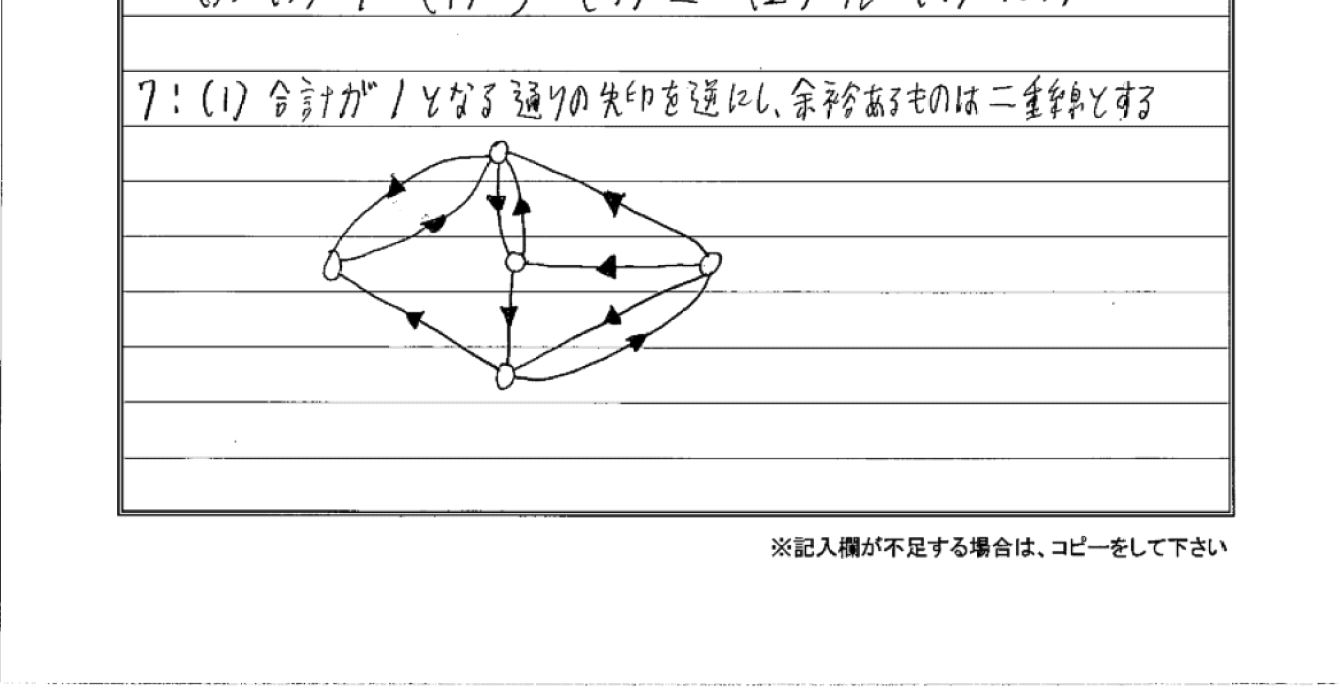 7:(1) 合計が1となる通りの矢印を逆にし、余裕あるものは二重線とする
※記入欄が不足する場合は、コピーをして下さい